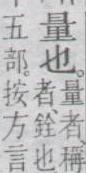 量也。量者、稱
者銓也
五部。按方言